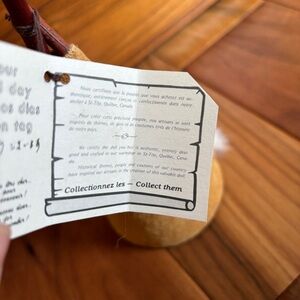 our
day
Nous certifions que la poupée que vous achetez est au-
thentique, entièrement conçue et confectionnée dans notre
atelier à St-Tite, Québec, Canada.
Pour créer cette précieuse poupée, nos artisans se sont
inspirés de thèmes, de gens et de costumes tirés de l'histoire
de notre pays.
We certify the doll you buy is authentic, entirely desi-
gned and crafted in our workshop in St-Tite, Québec, Cana-
da.
Historical themes, people and customs of our country
have inspired our artisans in the creation of this valuable doll.
Collectionnez les — Collect them